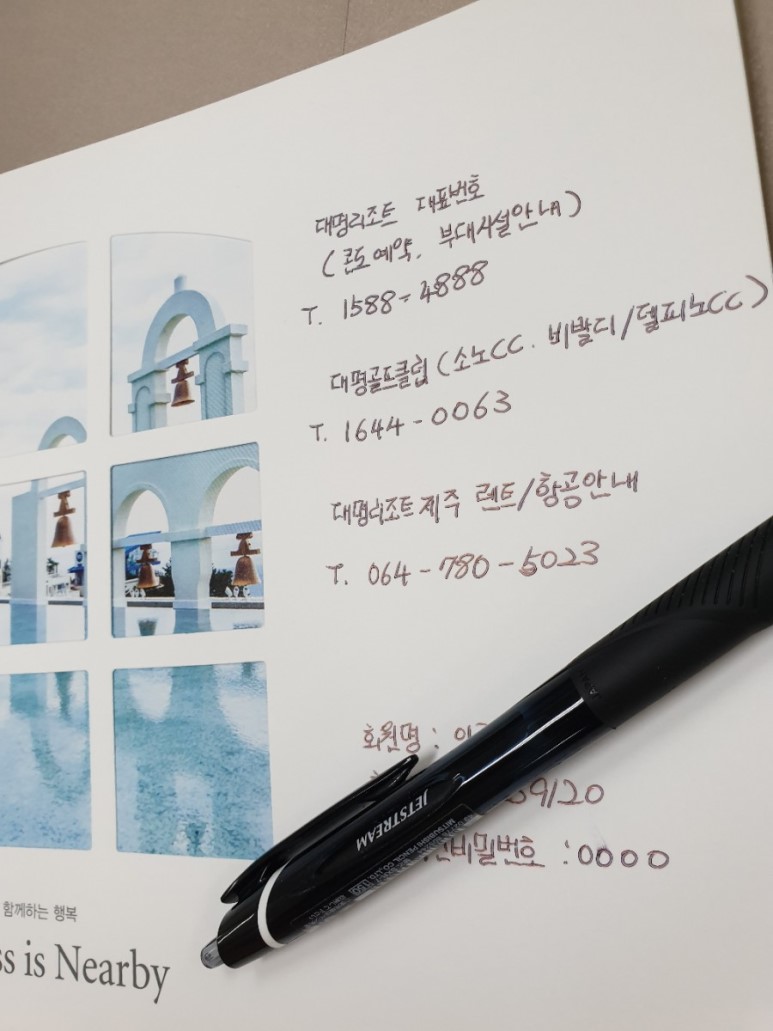 대명리조트 대표번호
(콘도예약, 부대시설안내)
T. 1588-4888
대명골프클럽 (소노CC. 비발디/델피노CC)
T. 1644-0063
대명리조트제주 렌트/항공안내
T. 064-780-5023
회원명 :
39120
비밀번호 : 0000
JETSTREAM
함께하는 행복
is Nearby